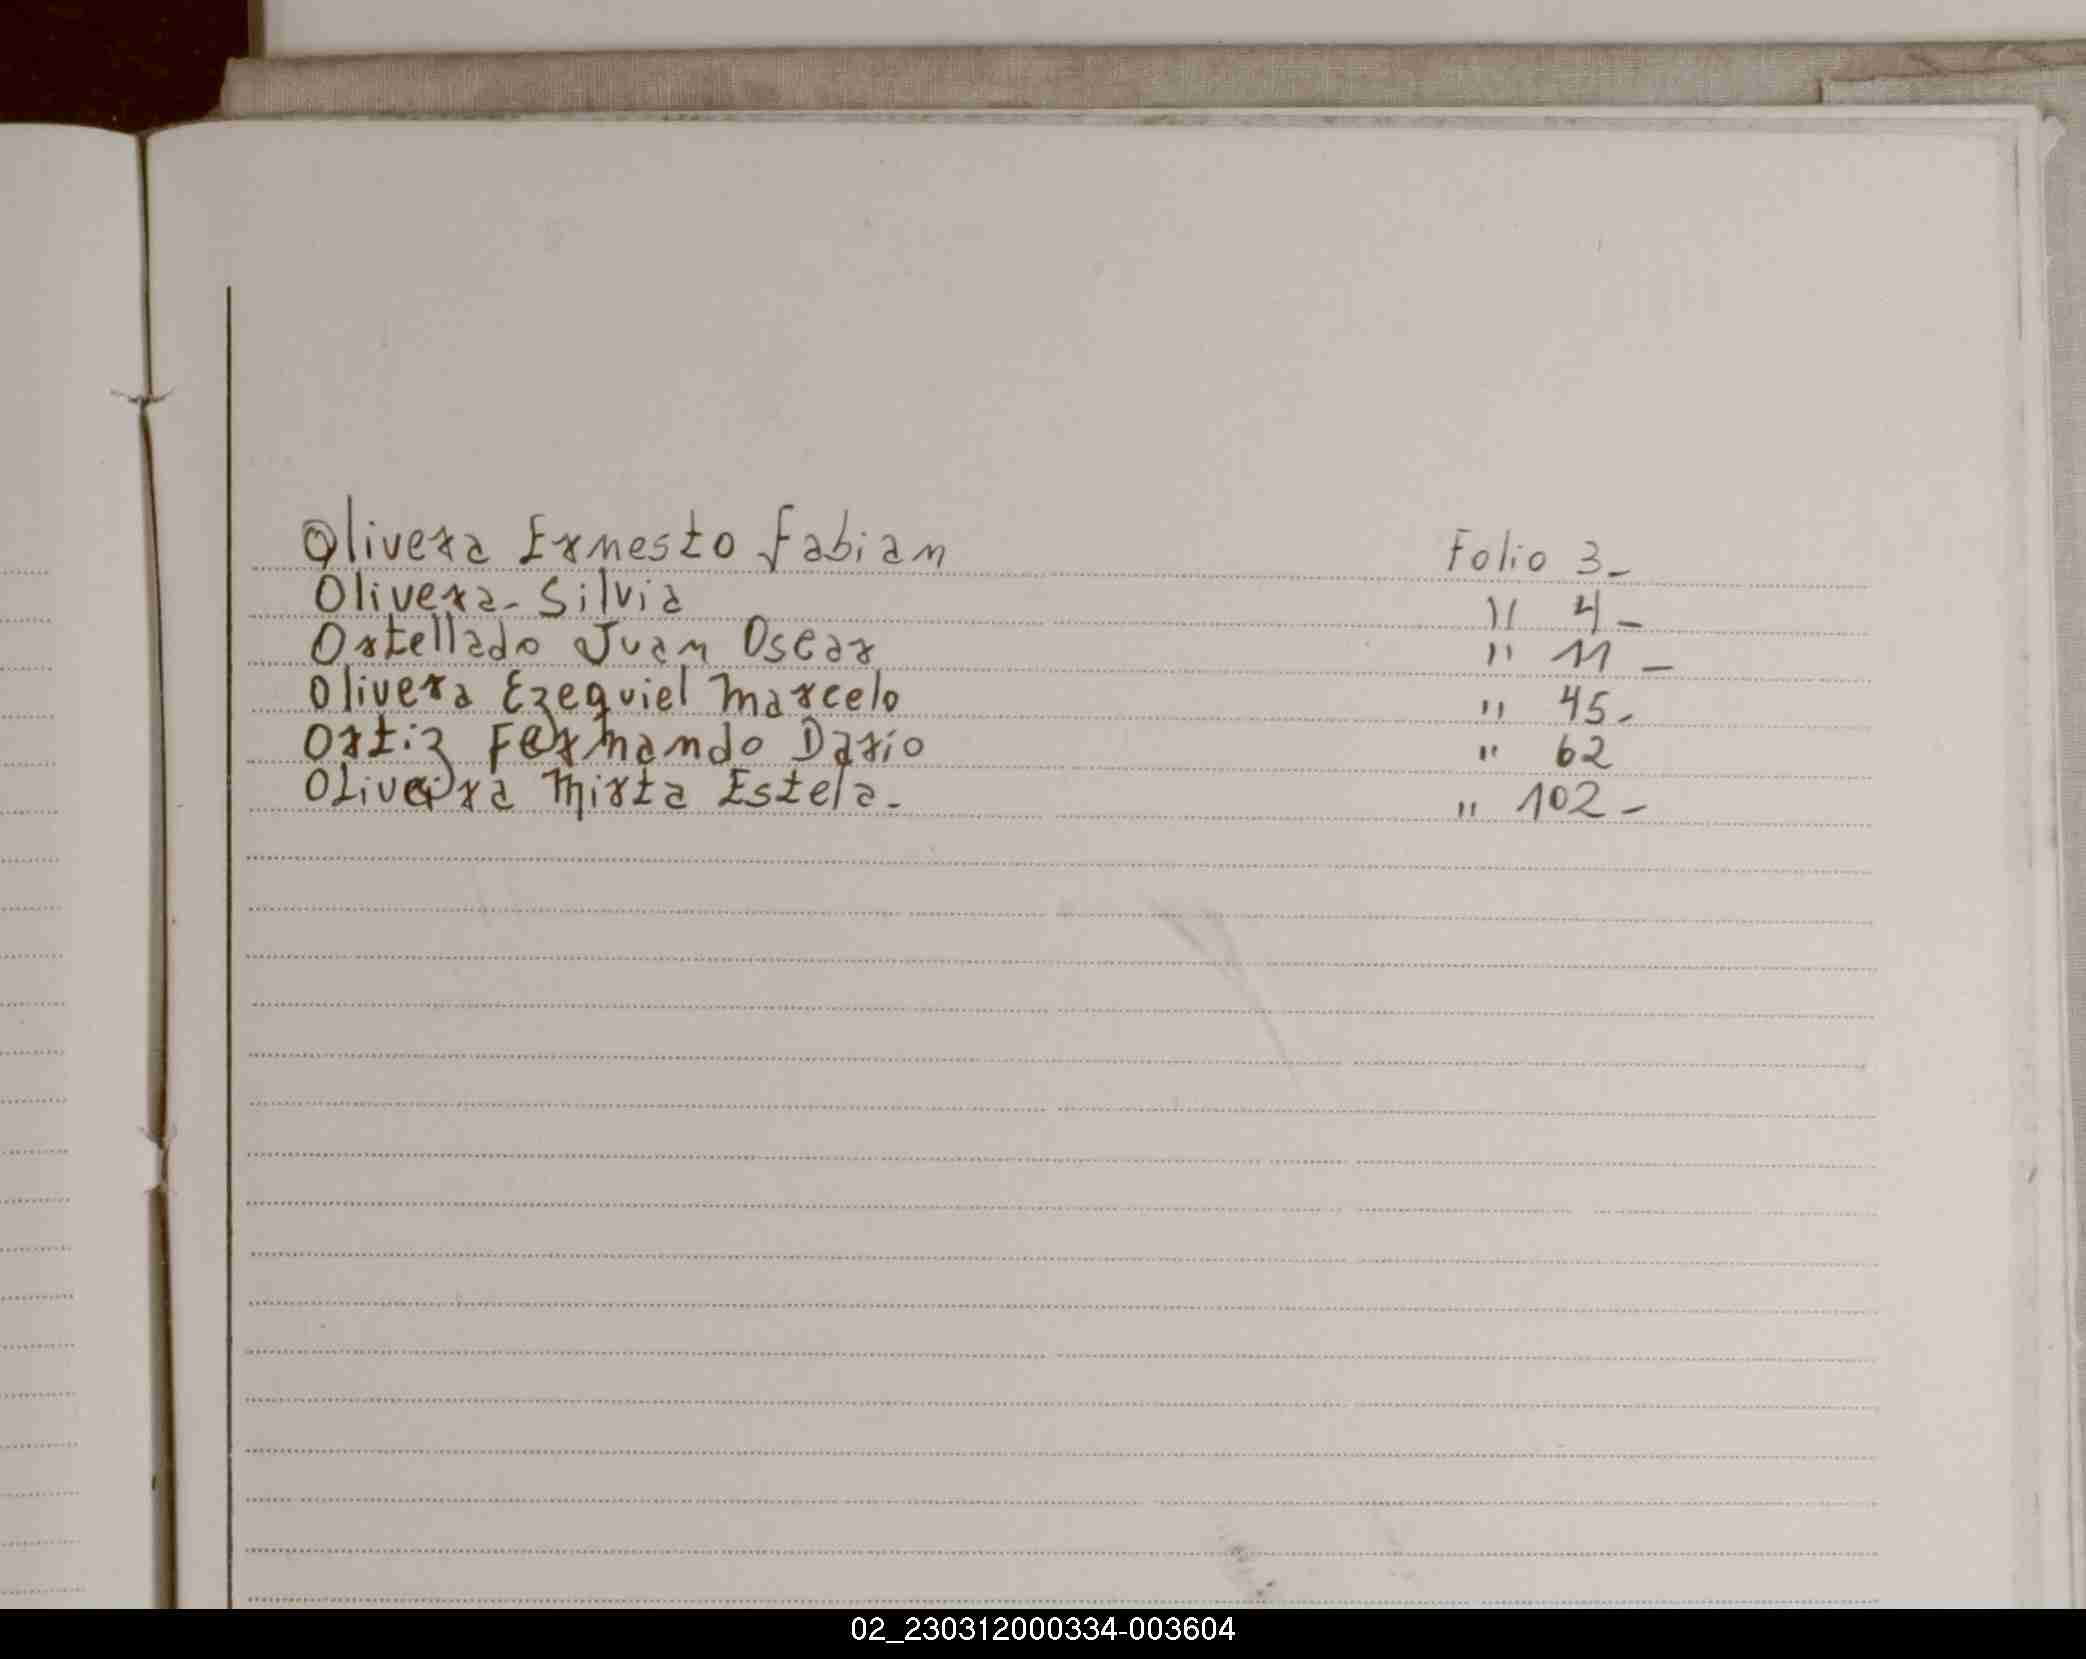 Olivera Ernesto Fabian Folio 3-
Olivera - Silvia " 4-
Ortellado Juan Oscar " 11-
Olivera Ezequiel Marcelo " 45-
Ortiz Fernando Dario " 62
Olivera Mirta Estela - " 102-
02_230312000334-003604